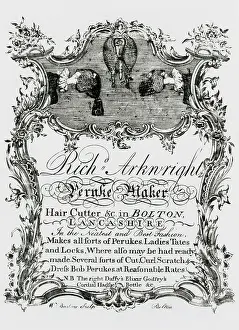 Rich Arkwright,
Peruke Maker
Hair Cutter &c in BOLTON,
LANCASHIRE
In the Neatest and Best Fashion.
Makes all sorts of Perukes, Ladies Tates
and Locks, Where also may be had ready
made Several sorts of Cut, Curl, Scratch &
Dress Bob Perukes, at Reasonable Rates
N.B The right Daffy's Elixir Godfry's
Cordial Bottle &c
Sculp Bolton